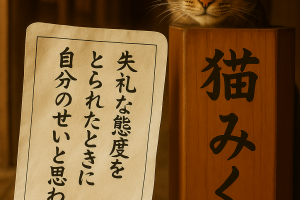 失礼な態度を
とられたときに
自分のせいと思わ
猫みく